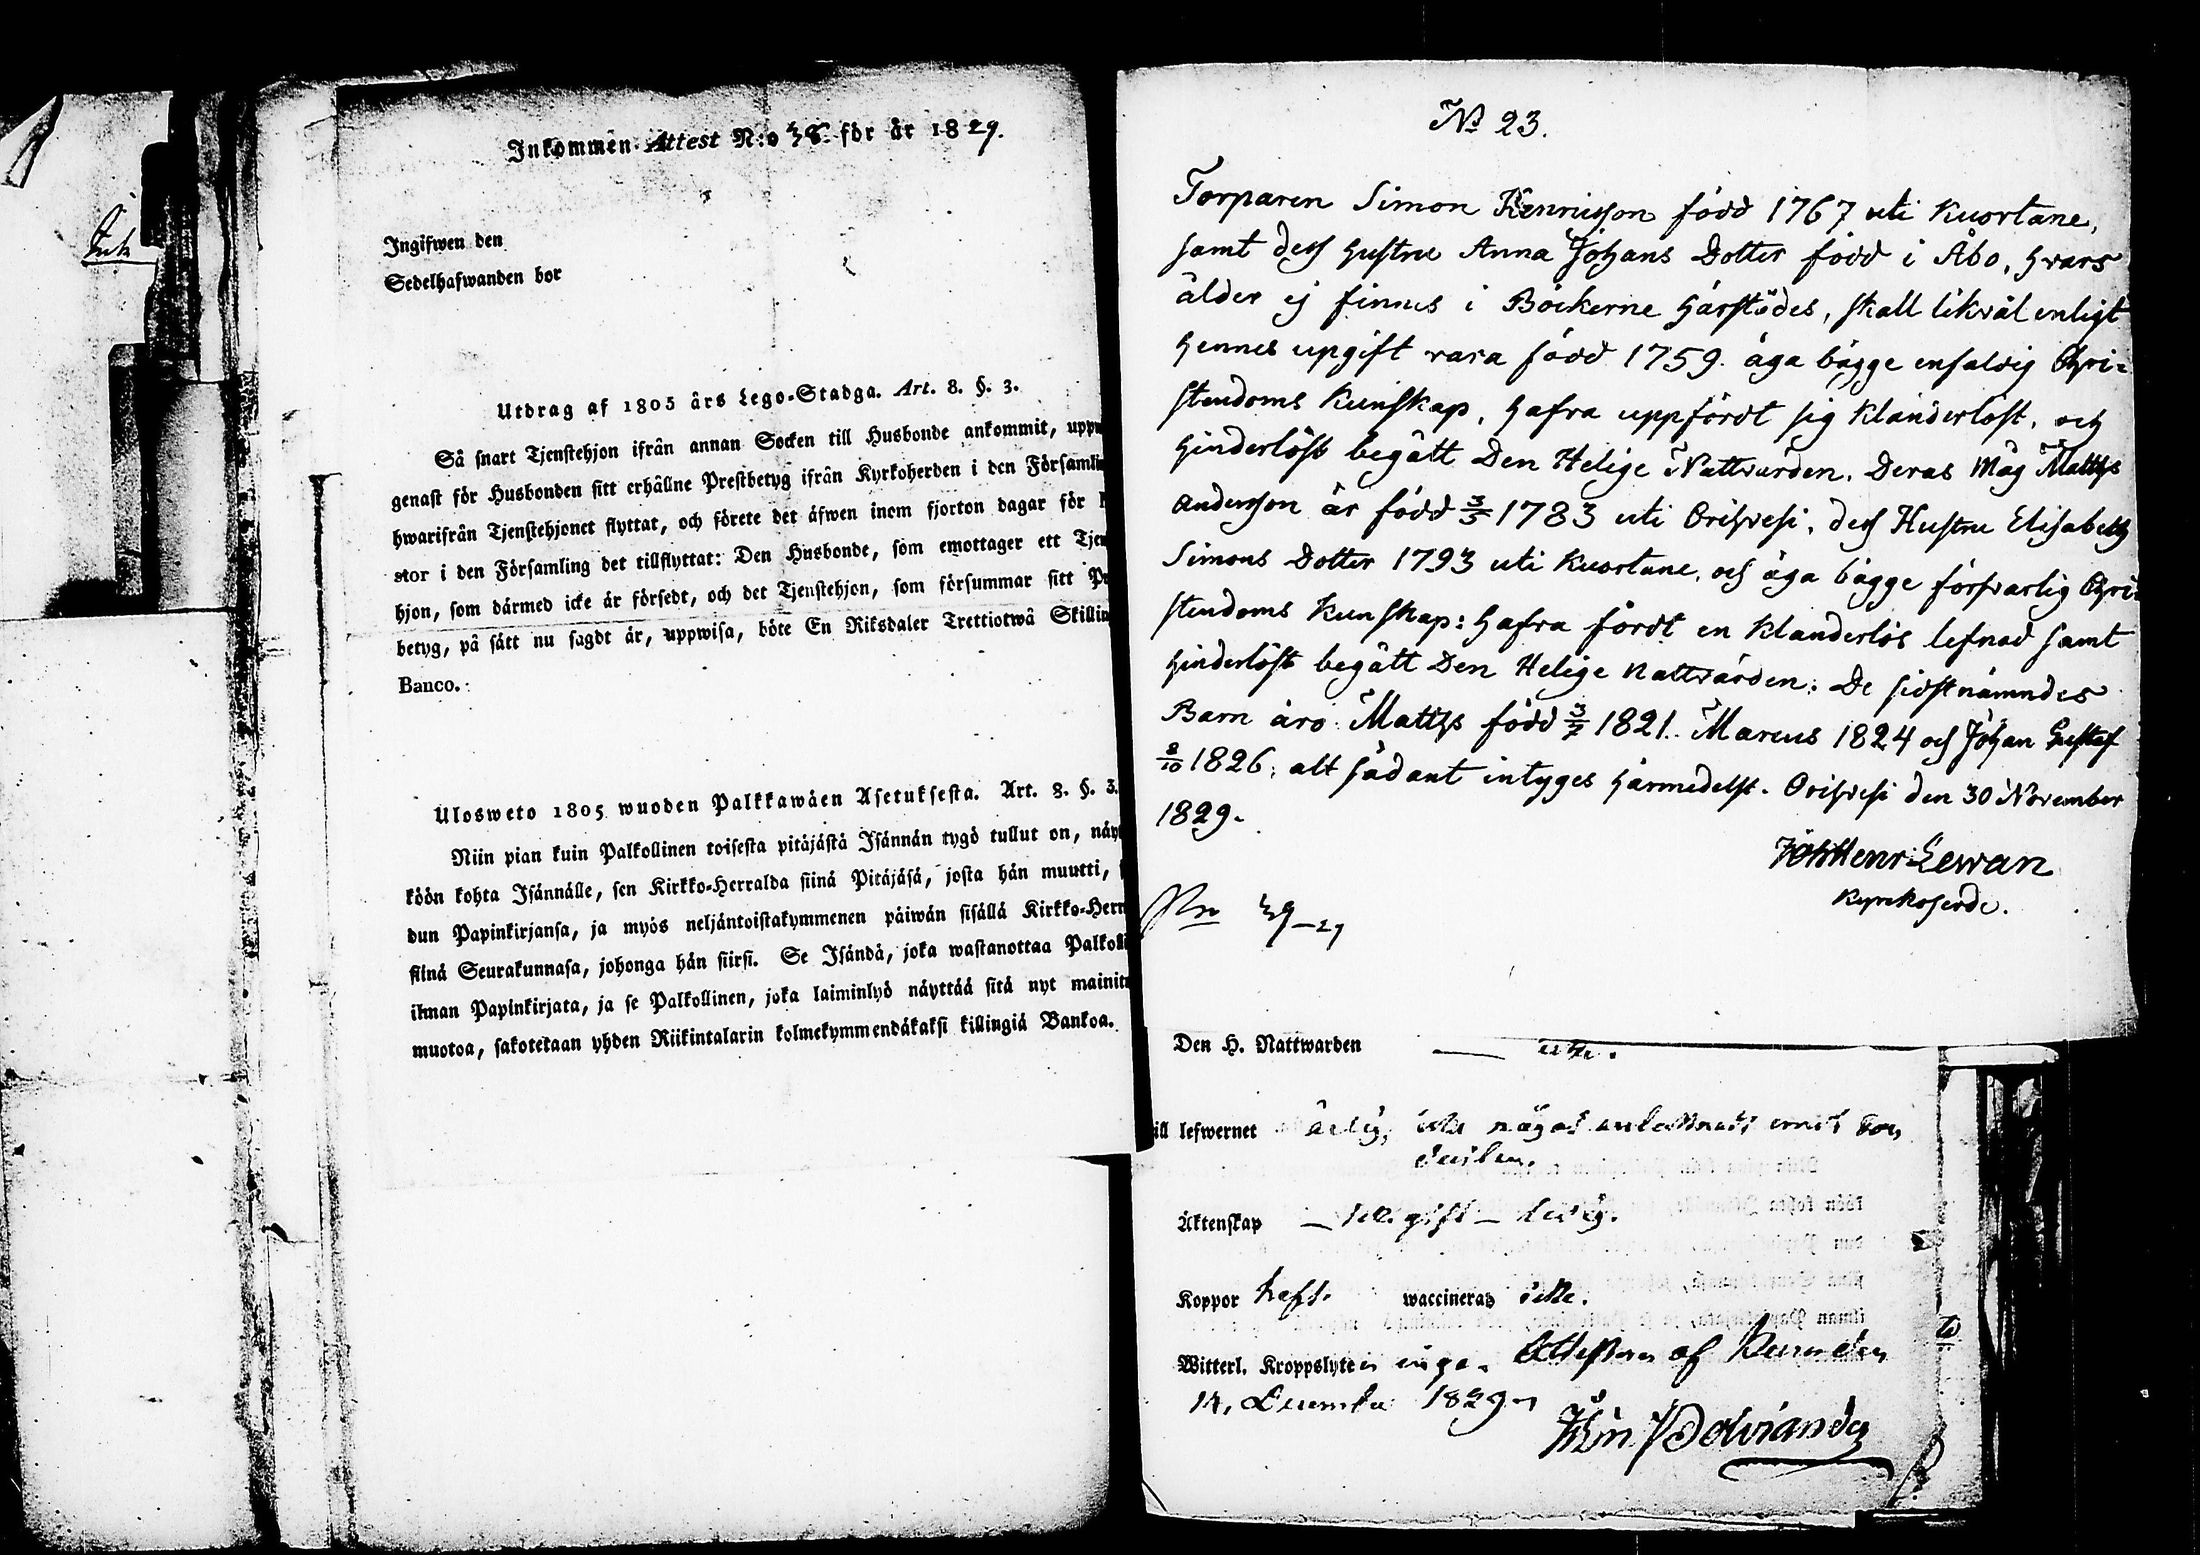 Ink
Inkommen Attest N:o 38. för år 1829.
Ingifwen den
Sedelhafwanden bor
Utdrag af 1805 års Lego-Stadga. Art. 8. §. 3.
Så snart Tjenstehjon ifrån annan Socken till Husbonde ankommit, uppw
genast för Husbonden sitt erhållne Prestbetyg ifrån Kyrkoherden i den Församlin
hwarifrån Tjenstehjonet flyttat, och förete det äfwen inom fjorton dagar för
stor i den Församling det tillflyttat: Den Husbonde, som emottager ett Tjen
hjon, som därmed icke är försedt, och det Tjenstehjon, som försummar sitt Pr
betyg, på sått nu sagdt är, uppwisa, böte En Riksdaler Trettiotwå Skillin
Banco.
Ulosweto 1805 wuoden Palkkawäen Asetuksesta. Art. 8. §. 3.
Niin pian kuin Palkollinen toisesta pitäjästä Isännän tygö tullut on, näyt
köön kohta Isännälle, sen Kirkko-Herralda siinä Pitäjäsä, josta hän muutti,
dun Papinkirjansa, ja myös neljäntoistakymmenen päiwän sisällä Kirkko-Herr
siinä Seurakunnasa, johonga hän siirsi. Se Isändä, joka wastanottaa Palkolli
ilman Papinkirjata, ja se Palkollinen, joka laiminlyö näyttää sitä nyt mainitu
muotoa, sakotetaan yhden Riikintalarin kolmekymmendäkaksi killingiä Bankoa.
No 23.
Torparen Simon Henricsson född 1767 uti Kuortane,
samt dess hustru Anna Johans Dotter född i Åbo, hvars
ålder ej finnes i Böckerne härstädes, skall likväl enligt
hennes upgift vara född 1759. äga bägge enfaldig Chri=
stendoms Kunskap, hafva uppfördt sig klanderlöst, och
hinderlöst begått Den Helige Nattvarden. Deras Måg Matths
Andersson är född 3/5 1783 uti Orihvesi, dess Hustru Elisabeth
Simons Dotter 1793 uti Kuortane, och äga bägge försvarlig Chri=
stendoms Kunskap: hafva fördt en klanderlös lefnad samt
hinderlöst begått Den Helige Nattvarden: De sidstnämndes
Barn äro Matths född 3/7 1821. Marcus 1824 och Johan Gustaf
2/10 1826; alt sådant intyges härmedelst. Orihvesi den 30 November
1829.
Joh Henr: Lewan
Kyrkoherde.
39–29
Den H. Nattwarden
ill lefwernet ärlig,
Äktenskap
Koppor haft. waccinerad icke.
Witterl. Kroppslyten inga. af
14, December 1829